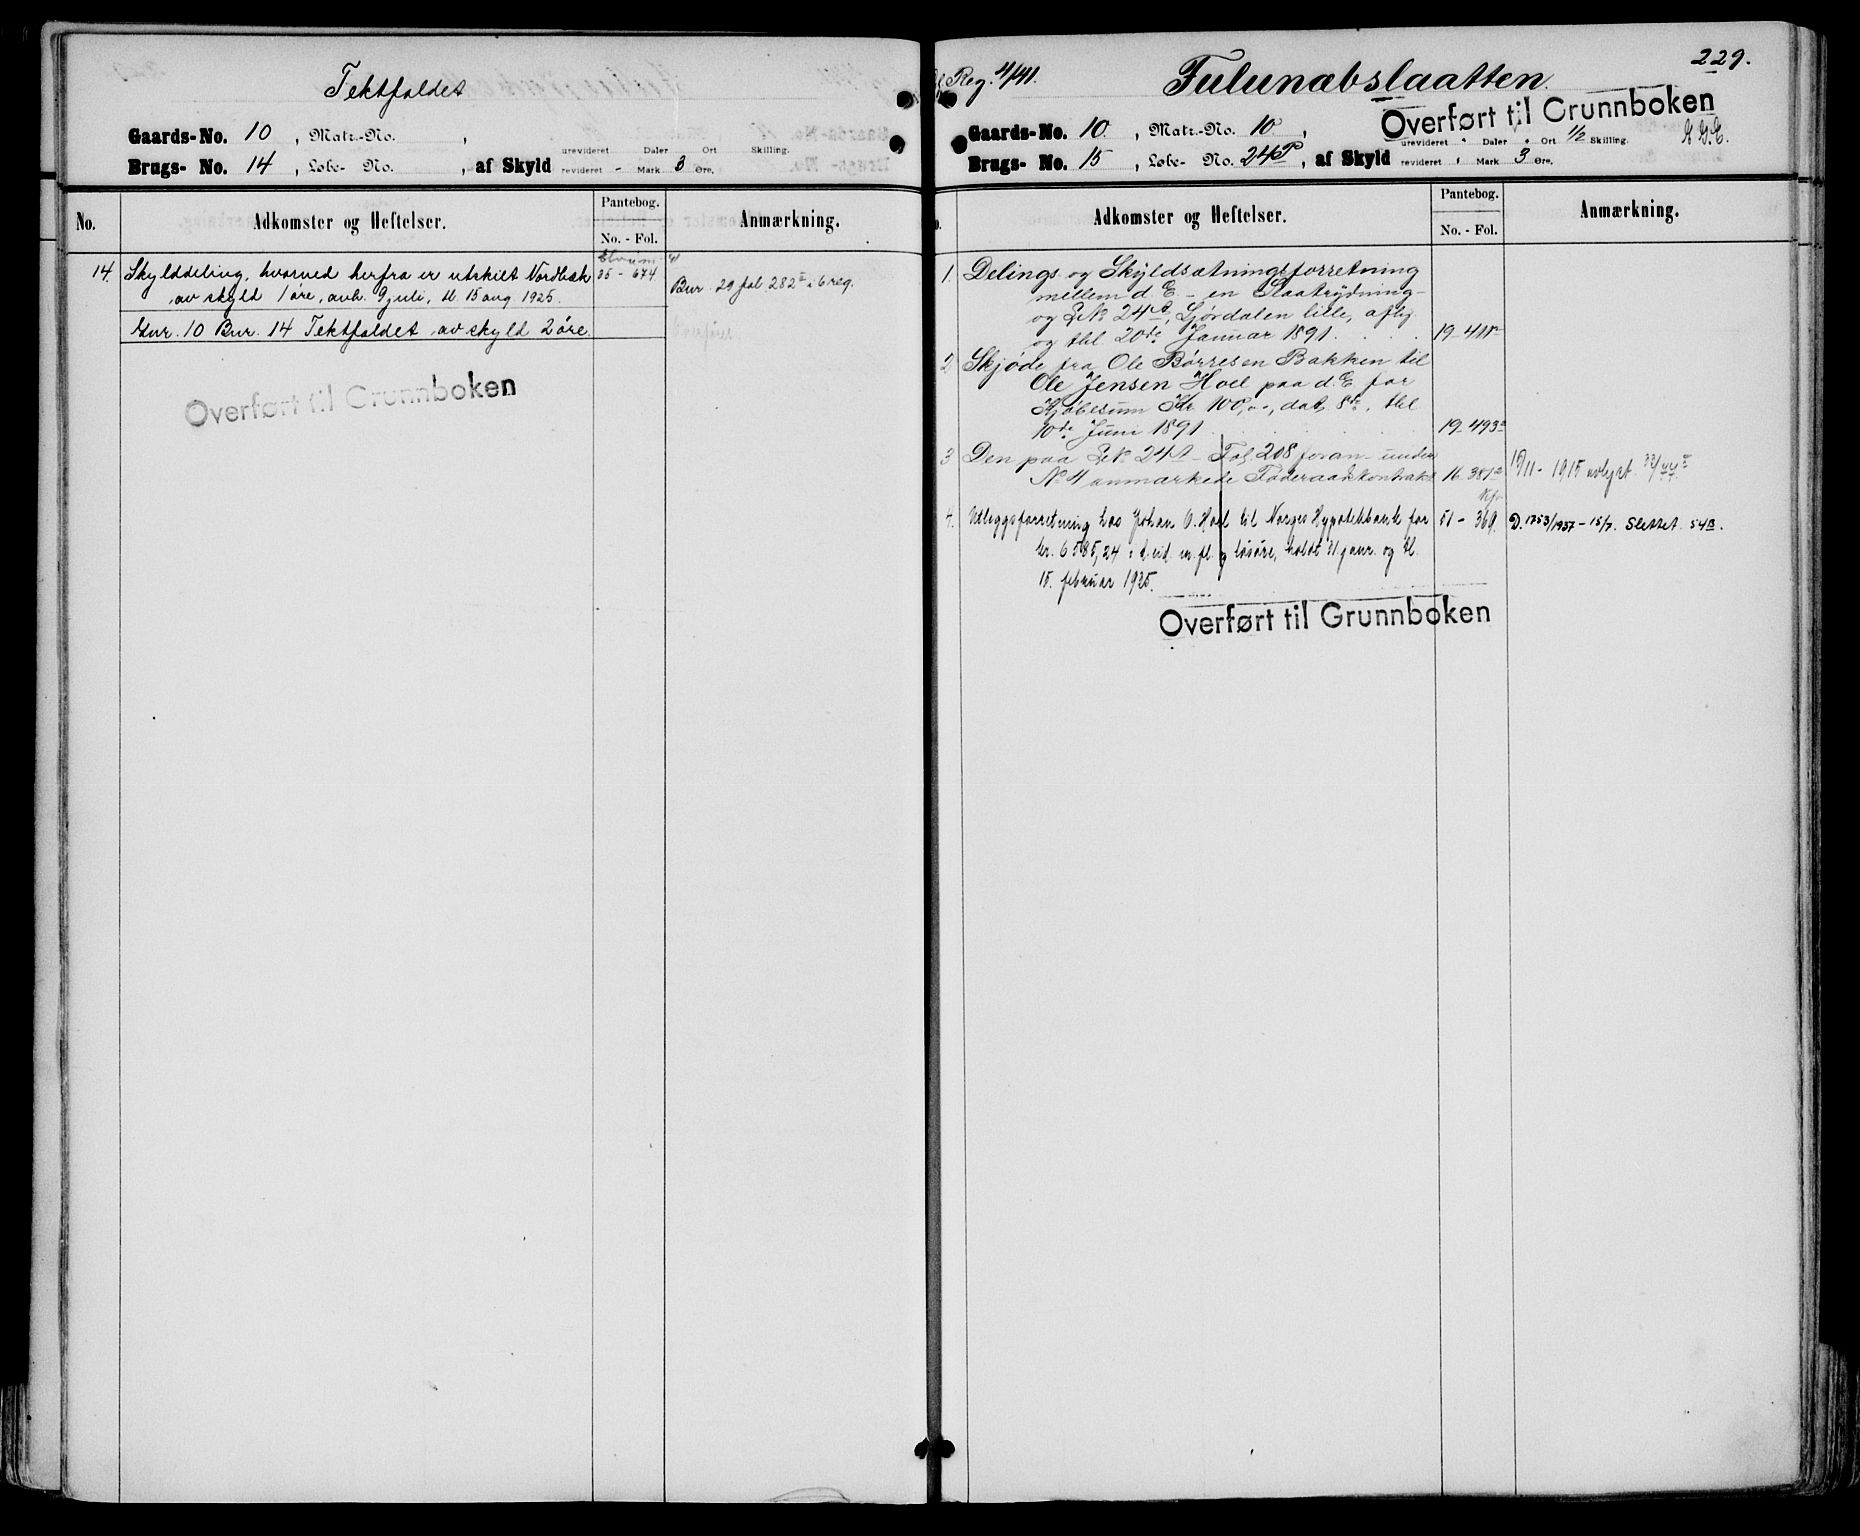 Tektfaldet
Gaards-No. 10, Matr.-No. ,
Brugs- No. 14, Løbe- No. , af Skyld urevideret Daler Ort Skilling.
revideret - Mark 3 Øre.
No. Adkomster og Heftelser. Pantebog. No. - Fol. Anmærkning.
14. Skylddeling, hvorved herfra er utskilt Nordbæk 35 - 674 Bnr. 29 fol. 282 i 6 reg.
av skyld 1 øre, avh. 9 juli, tl. 15 aug 1925.
Gnr. 10 Bnr. 14 Tektfaldet av skyld 2 øre.
Overført til Grunnboken
229.
Reg. 4/141. Fulunæbslaatten.
Overført til Grunnboken
Gaards-No. 10, Matr.-No. 10, urevideret " Daler " Ort 1/2 Skilling.
Brugs- No. 15, Løbe- No. 24P, af Skyld revideret , Mark 3 Øre.
Adkomster og Heftelser. Pantebog. No. - Fol. Anmærkning.
1. Delings og Skyldsætningsforretning
mellem d. E - en Slaatrydning -
og LNo 24A, Ljørdalen lille, aflg
og thl 20de Januar 1891. 19-411
2 Skjøde fra Ole Børresen Bakken til
Ole Jensen Hoel paa d. E for
Kjøbesum Kr 100,00, dat. 8de, thl
10de Juni 1891 19-493
3 Den paa LNo 24A - Fol. 208 foran under
No 4 anmærkede Føderaadskontrakt 16-381 19/11-1915 avlyst.
4. Utlægsforretning hos Johan O. Hoel til Norges Hypotekbank for 51 - 369. D. 1753/1937 - 15/7. Slettet. 54B.
kr. 6585,24 i d. eid. m. fl. og løsøre, holdt 31 januar og tl.
15. februar 1925.
Overført til Grunnboken